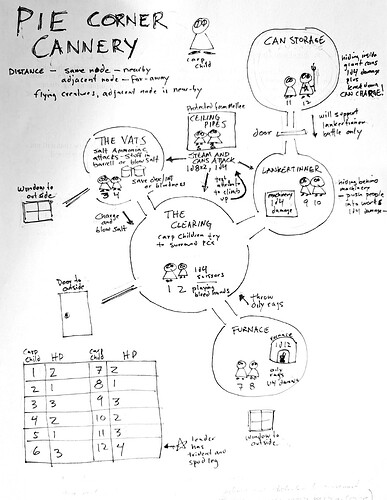 PIE CORNER
CANNERY
DISTANCE - same node - nearby
adjacent node - far-away
flying creatures, adjacent node is nearby
carp
child
CAN STORAGE
11 12
hiding inside
giant cans
1d4 damage
plus
knockdown
CAN CHARGE!
door
will support
lankertinner
battle only
Protected from melee
CEILING
PIPES
5 6
STEAM AND
CANS ATTACK
1d8x2, 1d4
THE VATS
Salt Ammonia
attacks - stuff in
barrel or blow salt
3 4
save
or blindness
Window to
outside
Charge
and blow salt
test
to
climb
up
LANKERTINNER
machinery
1d4
damage
9 10
hiding behind
machinery
- push people
into works
1d4 damage
THE
CLEARING
carp children try
to surround PCs
1d4
scissors
1 2
playing
blood hands
Door to
outside
throw
oily rags
FURNACE
furnace
1d12
7 8
oily
rags
1d4 damage
Window to
outside
Carp Child HD Carp Child HD
1 2 7 2
2 1 8 1
3 3 9 3
4 2 10 2
5 1 11 3
6 3 12 4
leader
has
trident and